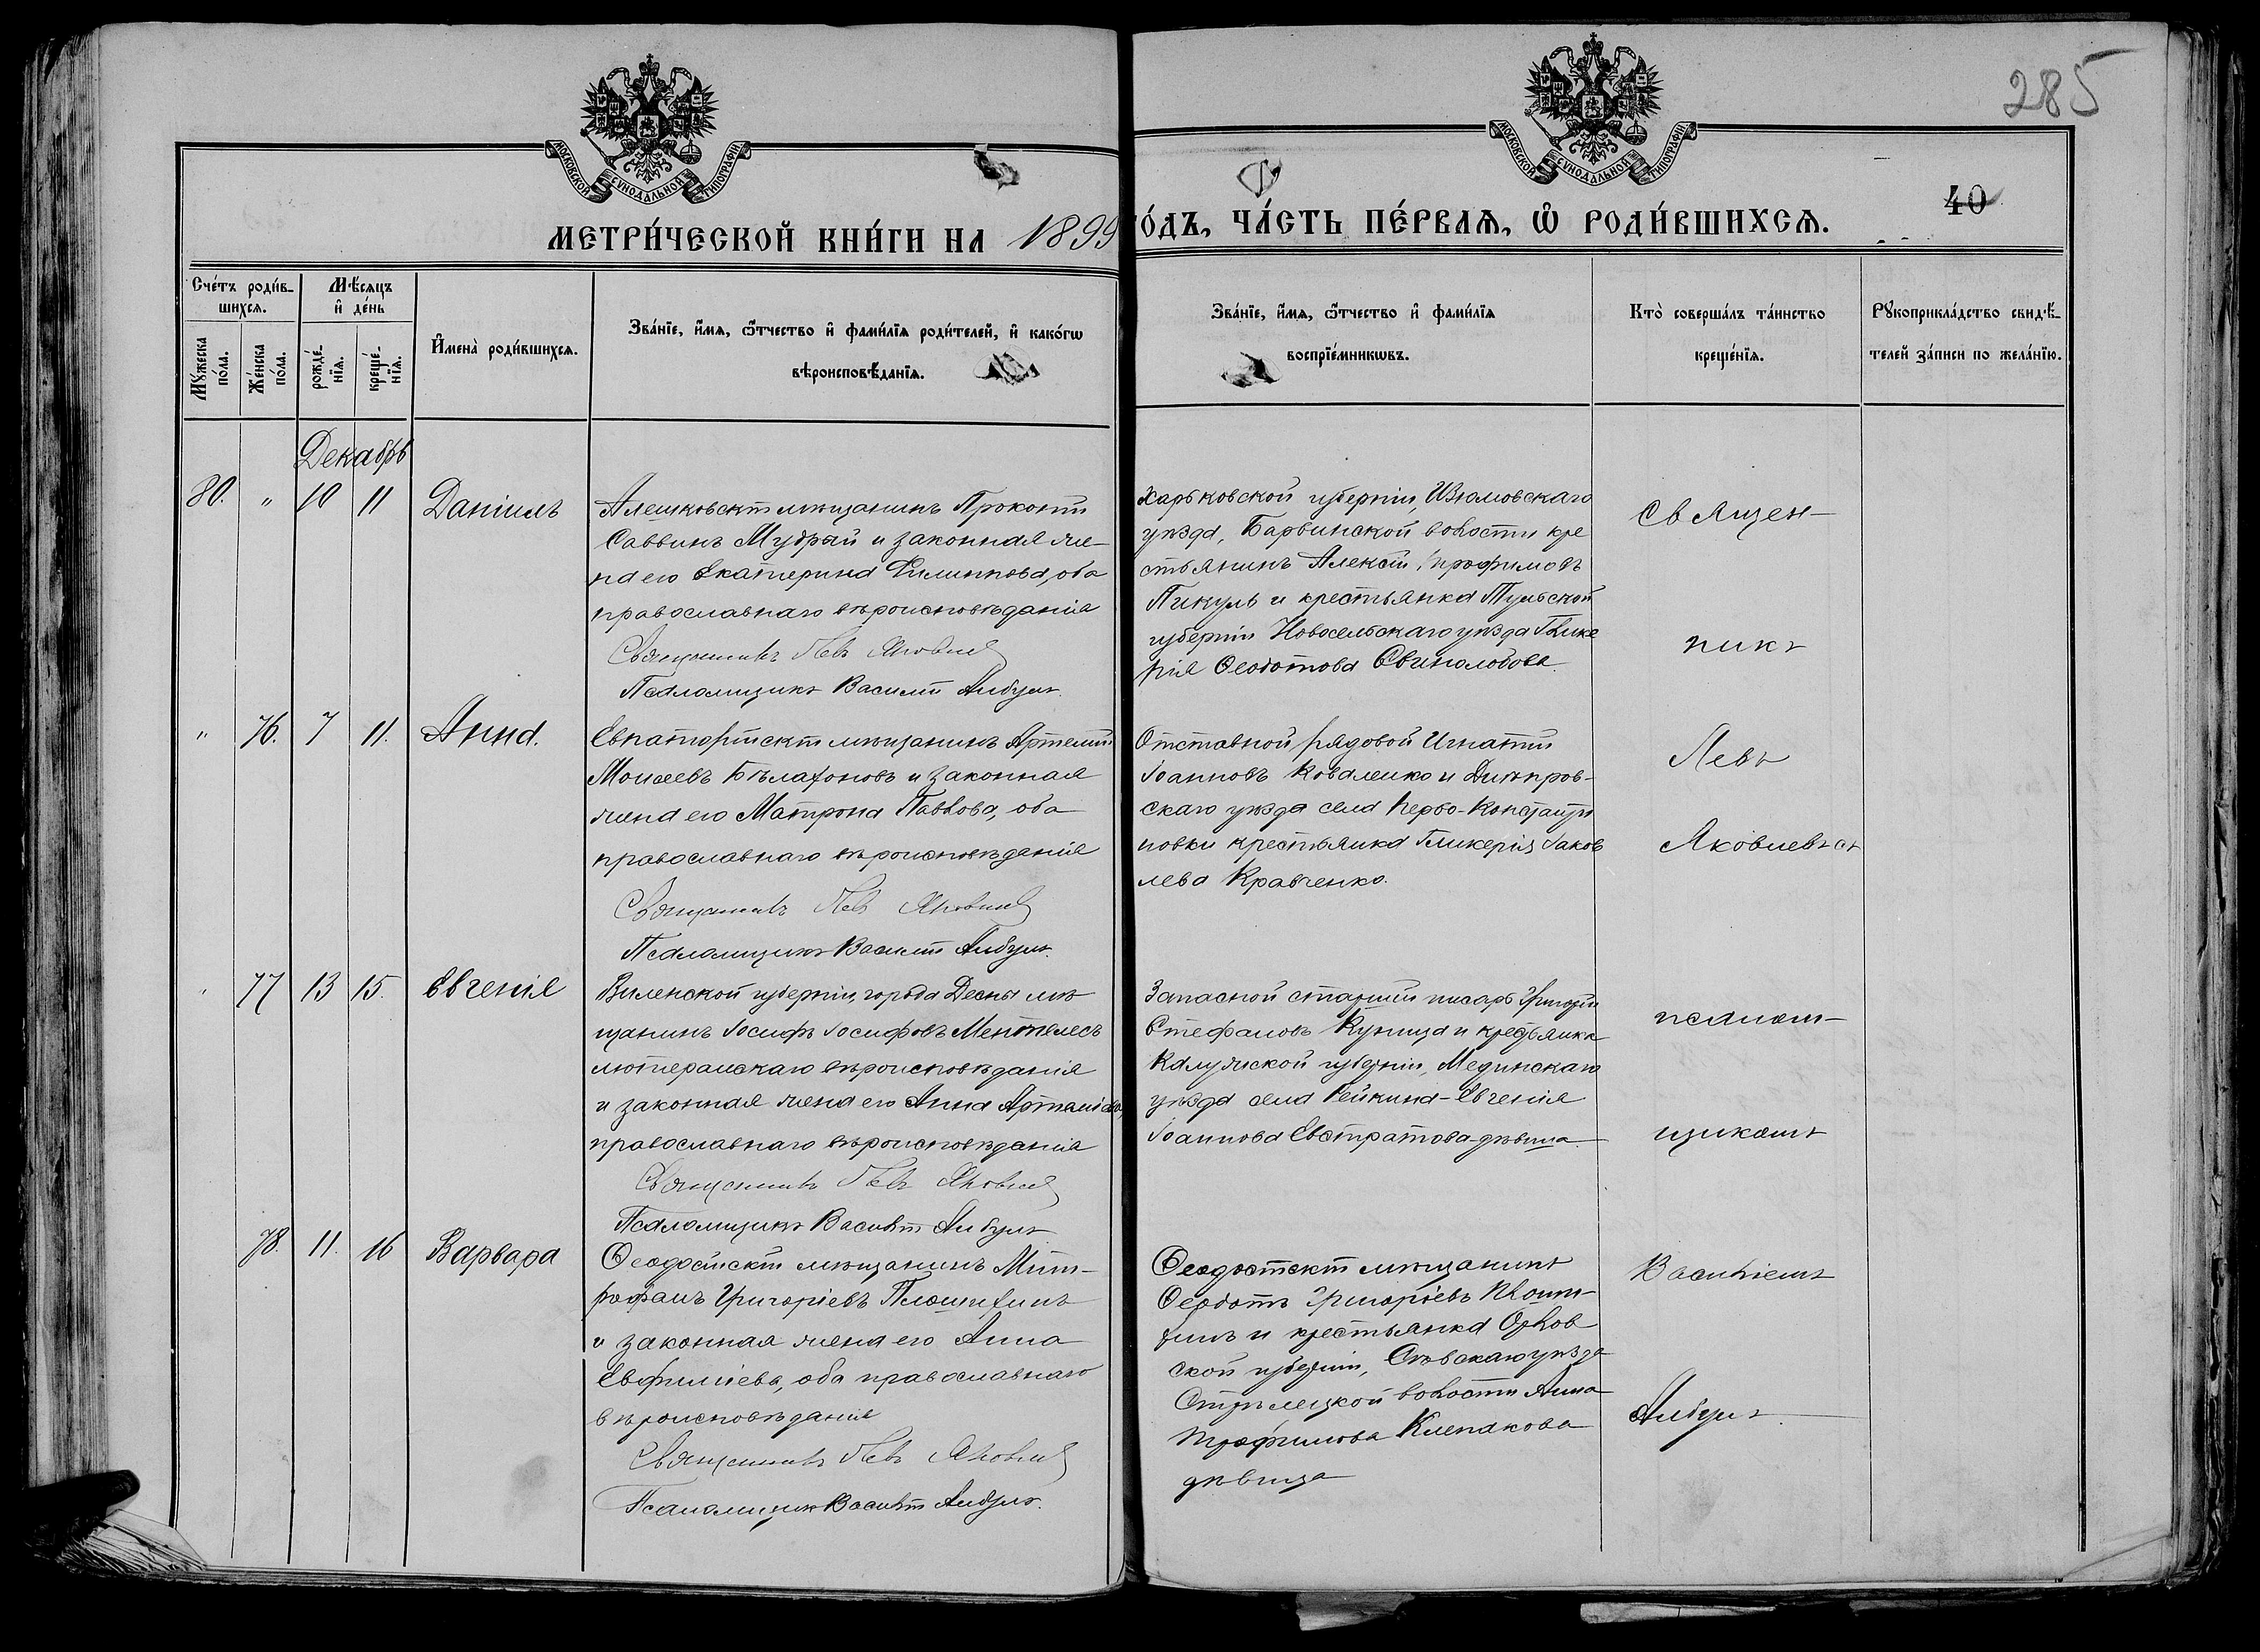 285
МОСКОВСКОЙ СѴНОДАЛЬНОЙ ТИПОГРАФІИ.
МОСКОВСКОЙ СѴНОДАЛЬНОЙ ТИПОГРАФІИ.
40
МЕТРИ́ЧЕСКОЙ КНИ́ГИ НА 1899 ГО́ДЪ, ЧА́СТЬ ПЕ́РВАѦ, Ѡ РОДИ́ВШИХСѦ.
Сче́тъ роди́в-
шихсѧ.
Мꙋ́жеска по́ла.
Же́нска по́ла.
Мѣ́сѧцъ
и҆ де́нь
рожде́-
нїѧ.
креще́-
нїѧ.
И҆мена̀ роди́вшихсѧ.
Зва́нїе, и҆́мѧ, ѻ҆́тчество и҆ фами́лїѧ роди́телей, и҆ како́гѡ
вѣроисповѣ́данїѧ.
Зва́нїе, и҆́мѧ, ѻ҆́тчество и҆ фами́лїѧ
воспрїе́мникѡвъ.
Кто̀ соверша́лъ та́инство
креще́нїѧ.
Рꙋкоприкла́дство свидѣ́-
телей за́писи по жела́нїю.
Декабрь
80. " 10 11 Даніилъ
Алешковскій мѣщанинъ Прокопій
Саввинъ Мудрый и законная же-
на его Екатерина Филиппова, оба
православнаго вѣроисповѣданія
Священникъ Левъ Яковлевъ
Псаломщикъ Василій Албулъ.
Харьковской губерніи, Изюмовскаго
уѣзда, Барвинской волости кре
стьянинъ Алексій Трофимовъ
Пикуль и крестьянка Тульской
губерніи Новосельскаго уѣзда Глике
рія Ѳеодотова Свинолобова
" 76. 7 11. Анна.
Евпаторійскій мѣщанинъ Артемій
Моисеевъ Бѣлафоновъ и законная
жена его Матрона Павлова, оба
православнаго вѣроисповѣданія
Священникъ Левъ Яковлевъ
Псаломщикъ Василій Албулъ.
Отставной рядовой Игнатій
Іоанновъ Коваленко и Днѣпров-
скаго уѣзда села Перво-Константи
новки крестьянка Гликерія Іаков
лева Кравченко.
77 13 15. Евгенія
Виленской губерніи, города Десны мѣ
щанинъ Іосифъ Іосифовъ
лютеранскаго вѣроисповѣданія
и законная жена его Анна
православнаго вѣроисповѣданія
Священникъ Левъ Яковлевъ
Псаломщикъ Василій Албулъ
Запасной старшій писарь Григорій
Стефановъ Куница и крестьянка
Калужской губерніи, Мединскаго
уѣзда села Рейкина-Евгенія
Іоаннова Евстратова-дѣвица
78. 11. 16 Варвара
Ѳеодосійскій мѣщанинъ Мит-
рофанъ Григоріевъ
и законная жена его Анна
Евфиміева, оба православнаго
вѣроисповѣданія
Священникъ Левъ Яковлевъ
Псаломщикъ Василій Албулъ.
Ѳеодосійскій мѣщанинъ
Ѳеодотъ Григорьевъ
и крестьянка Орлов
ской губерніи, Сѣвскаго уѣзда
Стрѣлецкой волости Анна
Трофимова Клепакова
дѣвица
Священ-
никъ
Левъ
Яковлевъ съ
псалом-
щикомъ
Василіемъ
Албулъ.